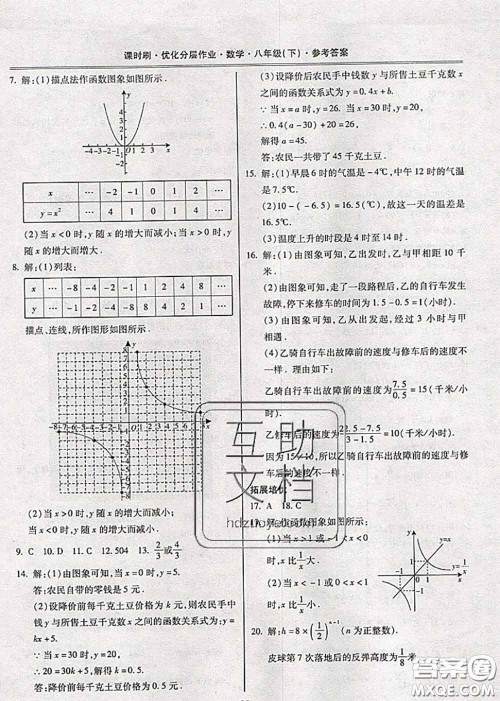 课时刷·优化分层作业·数学·八年级(下)·参考答案
7. 解:(1)描点法作函数图象如图所示.
x … -2 -1 0 1 2 …
(2)当 x<0 时,y 随 x 的增大而减小;当 x>0 时,y
随 x 的增大而增大.
8. 解:(1)列表:
x … -8 -4 -2 -1 1 2 4 8 …
描点、连线,所作图形如图所示.
(2)当 x>0 时,y 随 x 的增大而减小;
当 x<0 时,y 随 x 的增大而减小.
9. C 10. D 11. C 12. 504 13. 2/3或4/3
14. 解:(1)由图象可知,当 x=0 时,y=5.
答:农民自带的零钱是 5 元.
(2)设降价前每千克土豆价格为 k 元,则农民手中
钱 y 与所售土豆千克数 x 之间的函数关系式为:y=
kx+5.
∵当 x=30 时,y=20,
∴20=30k+5,解得 k=0.5.
答:降价前每千克土豆价格为 0.5 元.
(3)设降价后农民手中钱数 y 与所售土豆千克数 x
之间的函数关系式为 y=0.4x+b.
∵当 x=a 时,y=26. 当 x=30 时,y=20,
∴0.4(a-30)+20=26,
解得 a=45.
答:农民一共带了 45 千克土豆.
15. 解:(1)早晨 6 时的气温是-4℃,中午 12 时的气温
是 7.5℃.
(2)10-(-6.5)=16.5(℃),故这一天的温差是
16.5℃.
(3)温度上升的时段是 4 时至 14 时.
16. 解:(1)由图象可知,乙出发时,乙与甲相距 10 千
米.
(2)由图象可知,走了一段路程后,乙的自行车发生
故障,停下来修车的时间为 1.5-0.5=1(小时).
(3)由图象可知,乙从出发起,经过 3 小时与甲
相遇.
(4)乙骑自行车出故障前的速度与修车后的速度不
一样.
乙骑自行车出故障前的速度为7.5/0.5=15(千米/小
时).
乙修车后的速度为(22.5-7.5)/(3-1.5)=10(千米/小时).
因为 15>10,所以乙骑自行车出故障前的速度与修
车后的速度不一样.
拓展培优
17. A 18. C
19. 解:作函数图象如图所示:
(1)当 x>1 或-1<x<0
时,x 比1/x大.
(2)当 x<-1 或 0<x<1
时,x 比1/x小.
20. 解:h=8×(1/2)ⁿ⁻¹(n 为正整数).
皮球第 7 次落地后的反弹高度为1/8米
互助
文档
答案圈
MXQE.COM